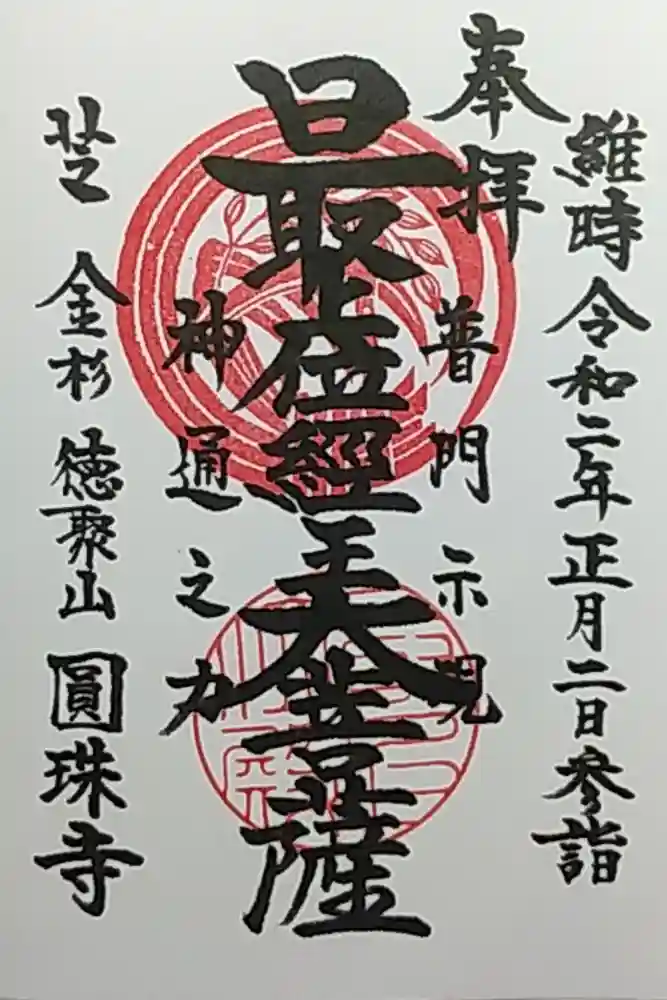 維時令和二年正月二日参詣
奉拝
普門示現
最上位經王大菩薩
神通之力
芝 金杉 徳聚山 圓珠寺